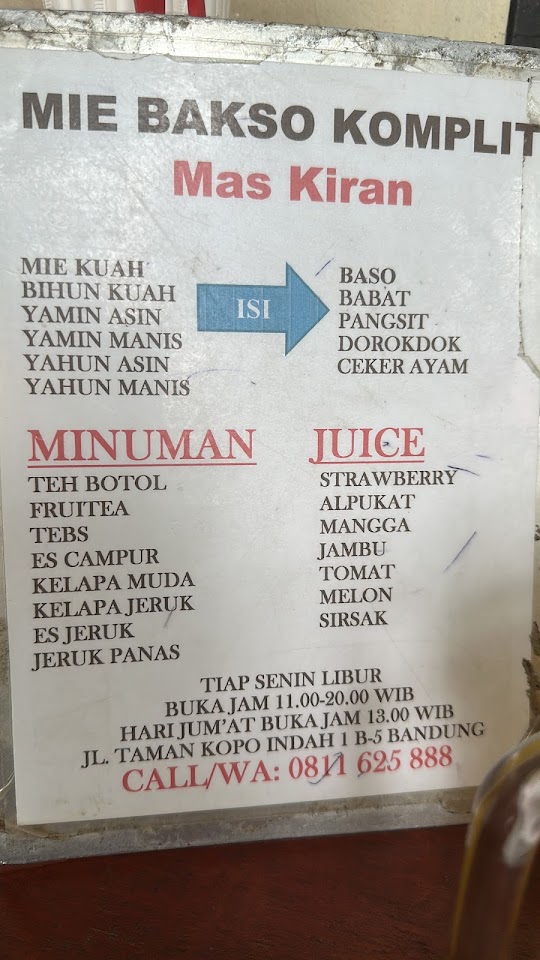 MIE BAKSO KOMPLIT
Mas Kiran
MIE KUAH
BIHUN KUAH
YAMIN ASIN
YAMIN MANIS
YAHUN ASIN
YAHUN MANIS
ISI
BASO
BABAT
PANGSIT
DOROKDOK
CEKER AYAM
MINUMAN
TEH BOTOL
FRUITEA
TEBS
ES CAMPUR
KELAPA MUDA
KELAPA JERUK
ES JERUK
JERUK PANAS
JUICE
STRAWBERRY
ALPUKAT
MANGGA
JAMBU
TOMAT
MELON
SIRSAK
TIAP SENIN LIBUR
BUKA JAM 11.00-20.00 WIB
HARI JUM'AT BUKA JAM 13.00 WIB
JL. TAMAN KOPO INDAH 1 B-5 BANDUNG
CALL/WA: 0811 625 888